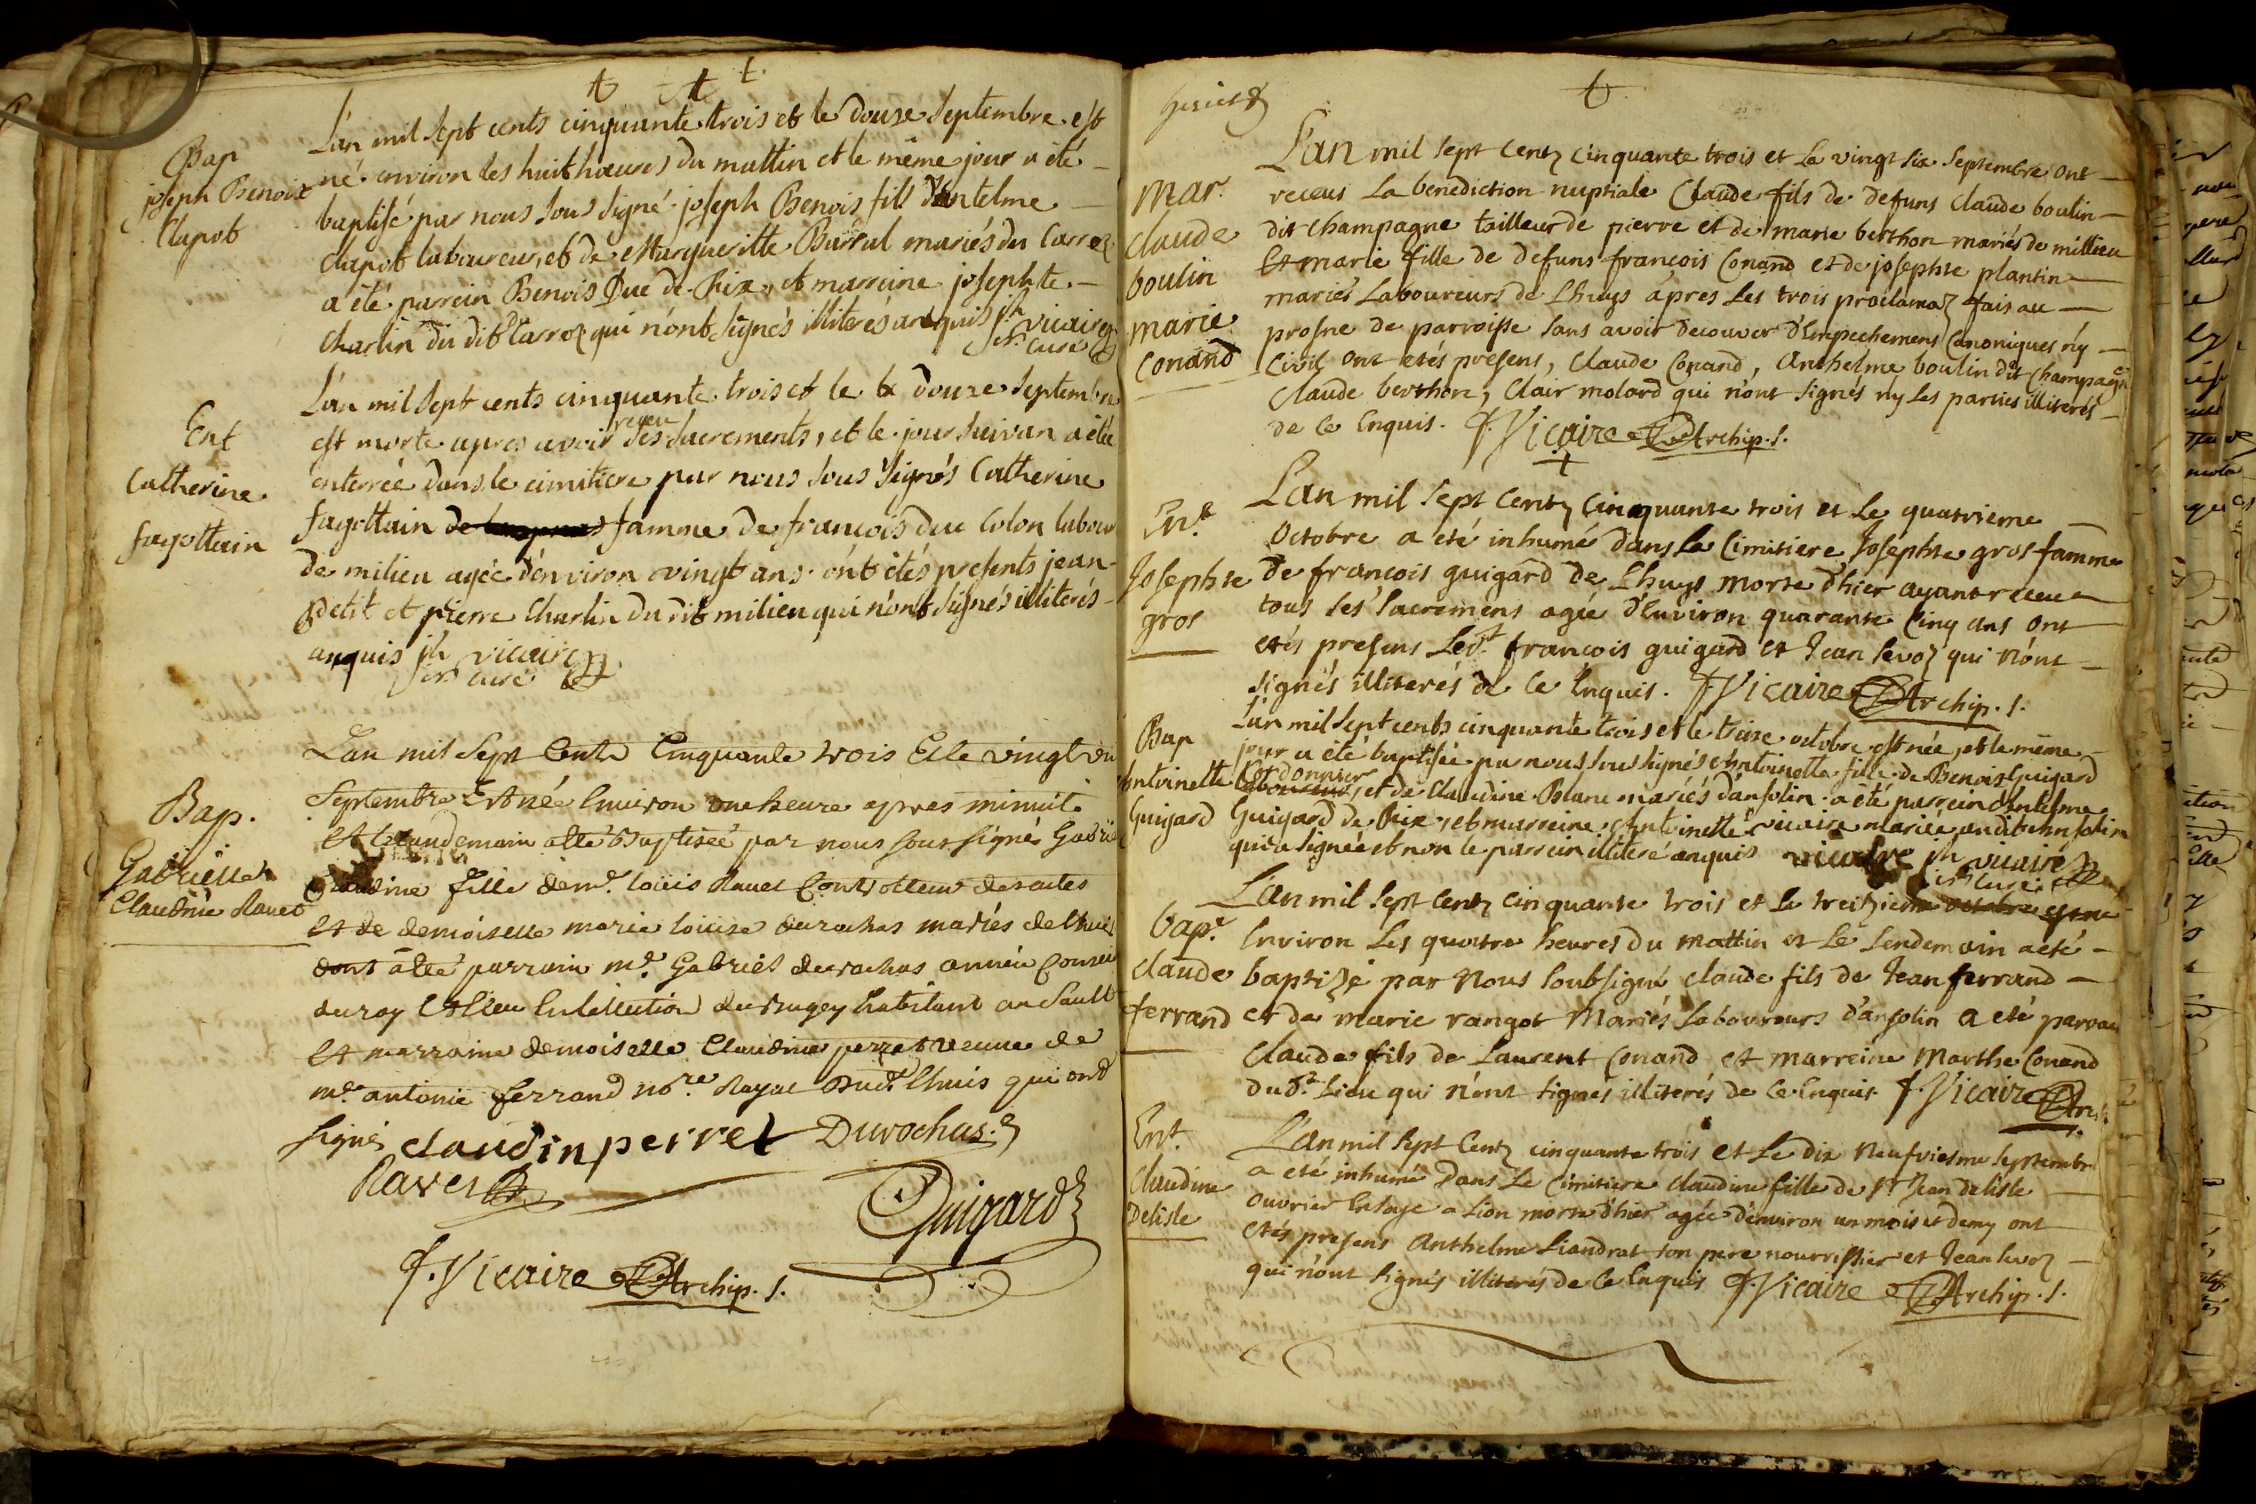 Bap
joseph Benoix
Clapot
L'an mil sept cents cinquante trois et le douze septembre est
né environ les huit hœures du mattin et le même jour a été
baptisé par nous sous signé joseph Benois fils d'Antelme
Clapot laboureur, et de Margueritte Barral mariés du Carroz
a été parrein Benois Duc de Rix, et marreine josephte
Charlin du dit Carroz qui n'ont signés illiterés anquis jh vicaire
curé
Ent
Catherine
fagottain
L'an mil sept cents cinquante trois et le douze septembre
est morte apres avoir receu ses sacrements, et le jour suivan a été
enterrée dans le cimitiere par nous sous signés Catherine
fagottain famme de françois duc Colon labour
de milieu agée d'environ vingt ans ônt étés presents jean
petit et pierre Charlin du dit milieu qui n'ont signés illiterés
anquis jh vicaire
curé
Bap.
Gabrielle
Claudine Ravet
L'an mil Sept Cents Cinquante trois Et le vingt un
Septembre Est née Environ une heure apres minuit
Et le landemain a été Baptisée par nous sous signés Gabriel
Claudine fille de mr. loüis Ravet Controlleur des actes
Et de demoiselle marie loüise durochas mariés de lhuis
dont a été parrain mr. Gabriel durochas ancien Conseil
du roy Esleu En l'ellection du Bugey habitant au Sault
Et marraine demoiselle Claudine perret veuve de
mr. antoine ferrand nore. Royal Dudt. lhuis qui ont
signés claudin perret Durochas
Ravet
Guigard
J. Vicaire Archip. s.
Mar.
claude
boulin
marie
Conand
L'an mil sept centz cinquante trois et le vingt six septembre ont
receus la benediction nuptiale Claude fils de defuns claude boulin
dit champagne tailleur de pierre et de marie berthon mariés de millieu
Et marie fille de defuns françois Conand et de josephte plantin
mariés Laboureurs de Lhuys apres les trois proclamaz fais au
prosne de parroisse sans avoir decouver d'Empechemens Canoniques ny
Civil ont etés presens, Claude Conand, Anthelme boulin dit Champagne
Claude berthon, Clair molard qui n'ont signés ny les parties illiterés
de ce Enquis. J. Vicaire Archip. s.
Ent
Josephte
gros
L'an mil sept centz cinquante trois et le quatrieme
Octobre a eté inhumé dans le Cimitiere Josephte gros famme
de francois guigard de Lhuys morte d'hier ayant receue
tous ses sacremens agée d'Environ quarante cinq ans ont
etés presens Ledt. françois guigard et Jean sevoz qui n'ont
signés illiterés de ce Enquis. J. Vicaire Archip. s.
Bap
Antoinette
Guigard
L'an mil sept cents cinquante trois et le treise octobre est née, et le même
jour a été baptisée par nous sous signés Antoinette fille de Benois Guigard
Cordonnier
laboureur, et de Claudine Blanc mariés d'ansolin a été parrein Antelme
Guigard de Rix, et marreine Antoinette vicaire mariée au dit ansolin
qui a signée et non le parrein illiteré anquis vicaire jh vicaire
curé
bapt.
claude
ferrand
L'an mil sept centz cinquante trois et le treizieme octobre est né
Environ Les quatre heures du mattin et Le Lendemain a eté
baptizé par Nous soubsigné claude fils de Jean ferrand
et de marie rangot Mariés Laboureurs d'ansolin a eté parrain
Claude fils de Laurent Conand et marreine Marthe Conand
dudt. Lieu qui n'ont signés illiterés de ce Enquis J. Vicaire
Ent.
Claudine
Delisle
L'an mil sept Centz cinquante trois et Le dix neufviesme septembre
a eté inhumé dans Le Cimitiere claudine fille de sr Jean delisle
ouvrier En soye a Lion morte d'hier agée d'environ un mois et demy ont
etés presens Anthelme Liandrat son pere nourrissier et Jean sevoz
qui n'ont signés illiterés de ce Enquis J. Vicaire Archip. s.